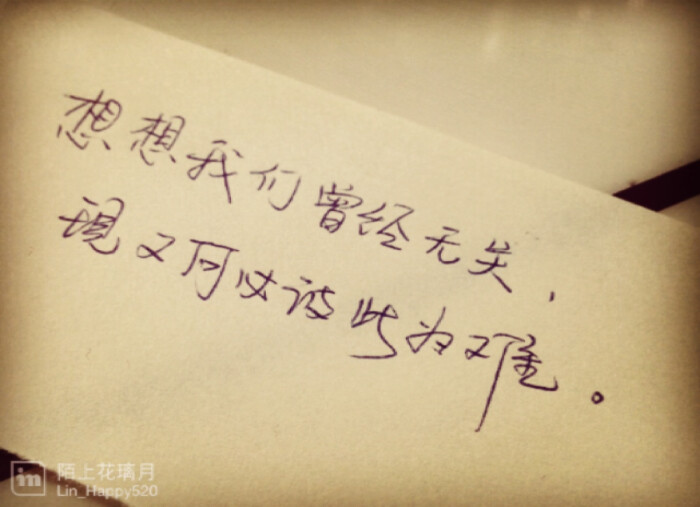 想想我们曾经无关，
現又何必彼此为难。
in
陌上花璃月
Lin_Happy520